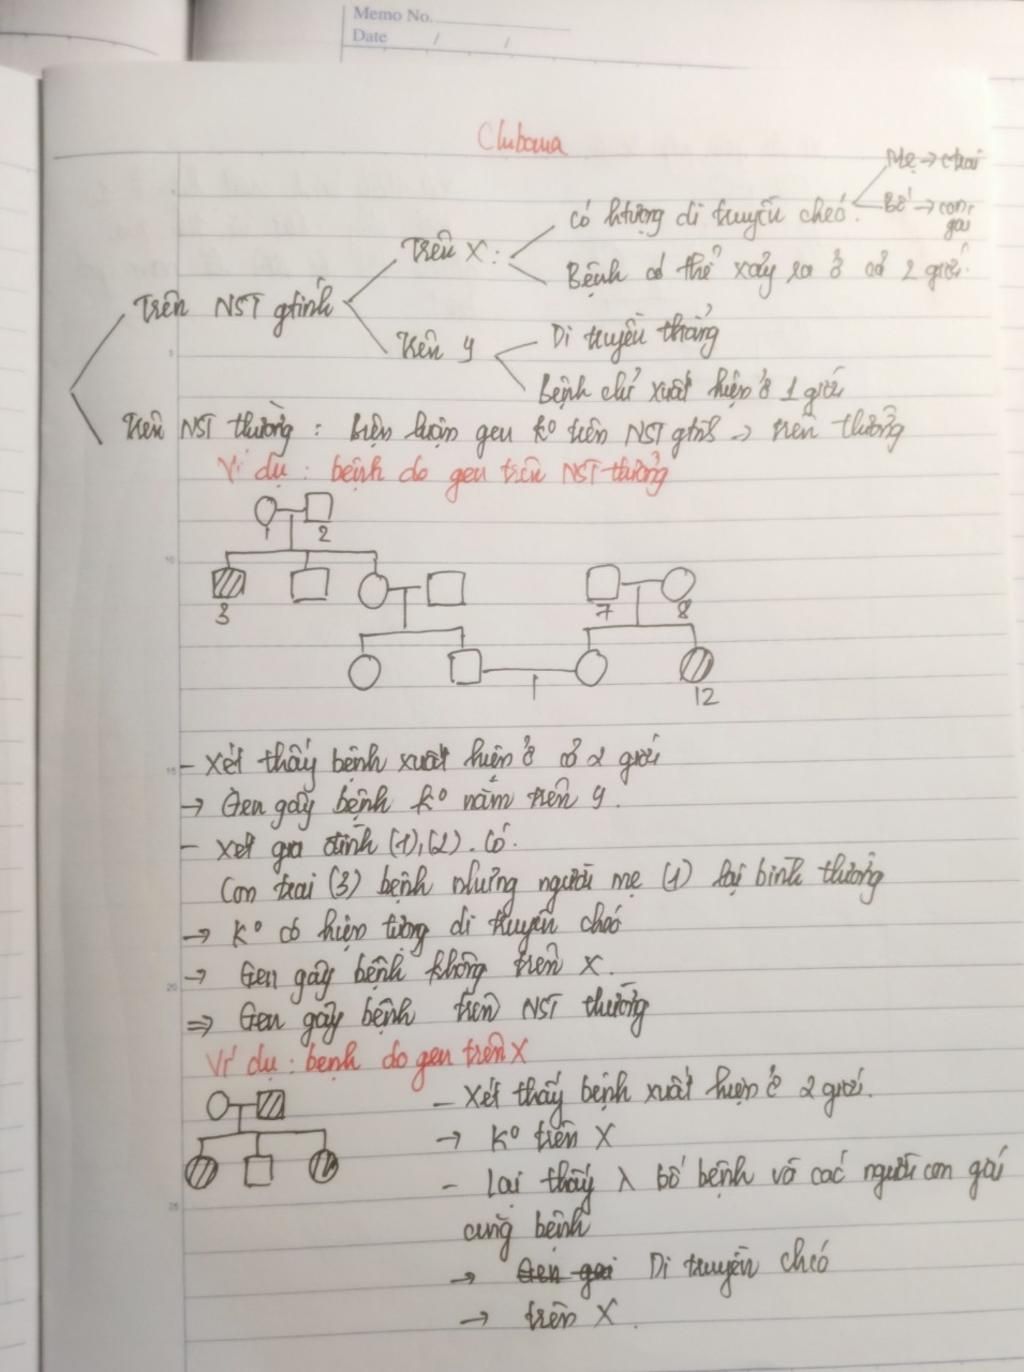 Memo No.
Date / /
Mẹ → ctrai
có htượng di truyền chéo. Bố → con
gái
Trên X:
Bệnh có thể xảy ra ở cả 2 giới.
Trên NST gtính
Di truyền thẳng
trên y
Bệnh chỉ xuất hiện ở 1 giới
trên NST thường: biện luận gen ko trên NST gtính → trên thường
Ví dụ: bệnh do gen trên NST thường
1 2
3 7 8
12
- Xét thấy bệnh xuất hiện ở cả 2 giới
→ Gen gây bệnh ko nằm trên y.
- Xét gia đình (1), (2). Có.
Con trai (3) bệnh nhưng người mẹ (1) lại bình thường
→ Ko có hiện tượng di truyền chéo
→ Gen gây bệnh không trên X.
⇒ Gen gây bệnh trên NST thường
Ví dụ: bệnh do gen trên X
- Xét thấy bệnh xuất hiện ở 2 giới.
→ Ko trên X
- Lại thấy λ bố bệnh và các người con gái
cũng bệnh
→ Di truyền chéo
→ trên X.